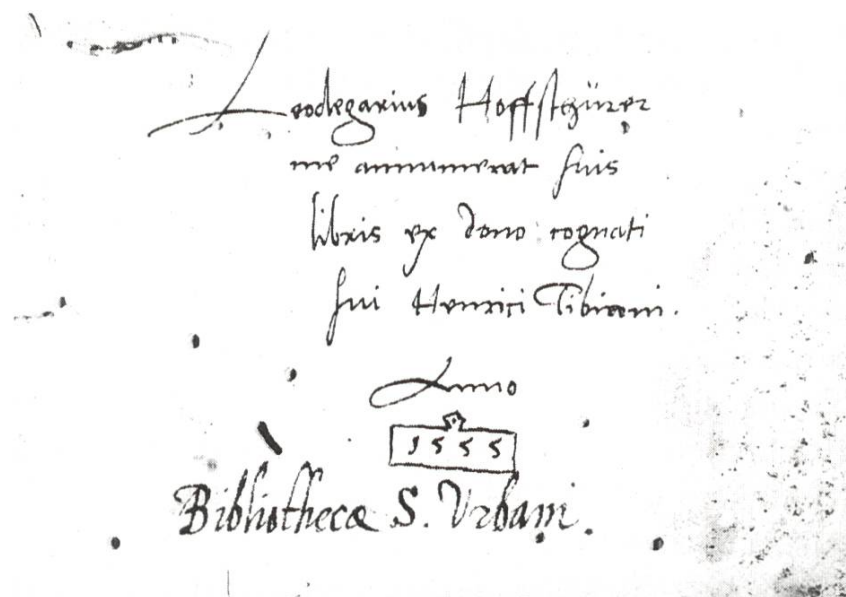 Leodegarius Hoffstgürer
me annumerat suis
libris ex dono cognati
sui Henrici Tibiani.
Anno
1555
Bibliothecæ S. Urbani.